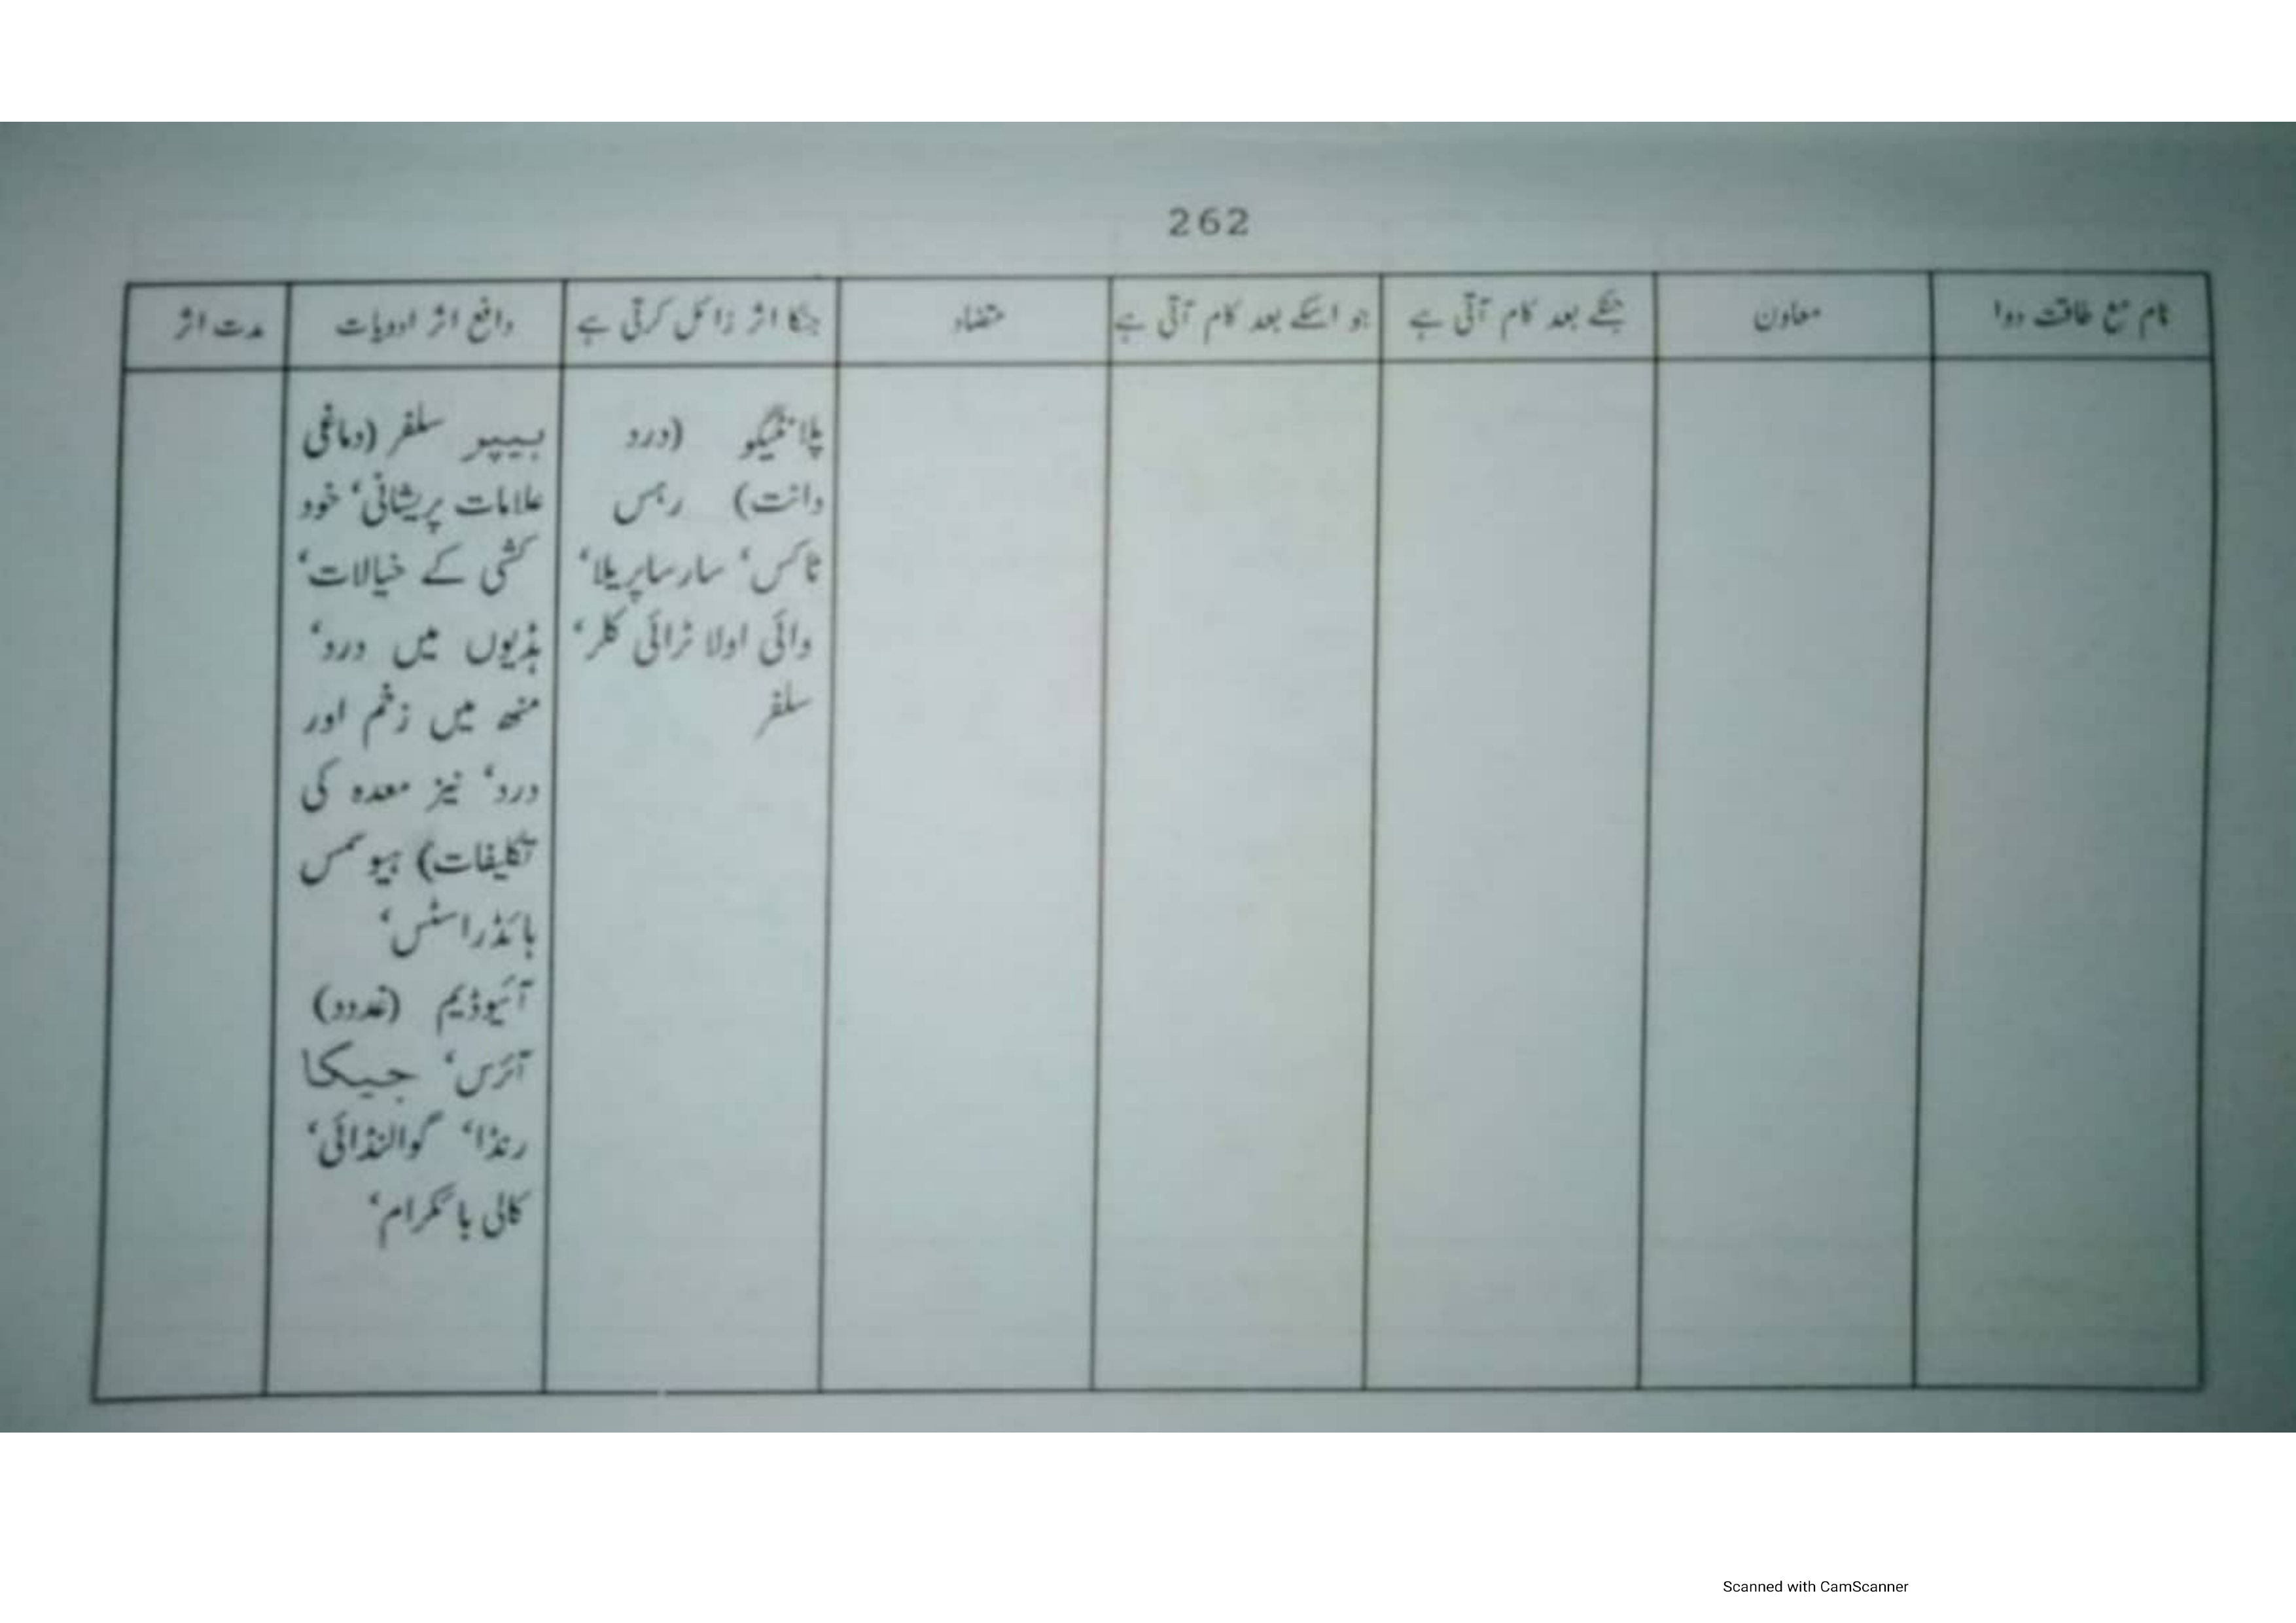 262
نام مع طاقت دوا
معاون
جنکے بعد کام آتی ہے
جو اسکے بعد کام آتی ہے
متضاد
جنکا اثر زائل کرتی ہے
دافع اثر ادویات
مدت اثر
پلانٹیگو (درد
دانت) رہس
ٹاکس‘ سارساپریلا‘
وائی اولا ٹرائی کلر‘
سلفر
ہیپر سلفر (دماغی
علامات پریشانی‘ خود
کشی کے خیالات‘
ہڈیوں میں درد‘
منہ میں زخم اور
درد‘ نیز معدہ کی
تکلیفات) ہیومس
ہائڈراسٹس‘
آئیوڈیم (غدود)
آئرس‘ جیکا
رنڈا‘ گوالنڈائی‘
کالی بائکرام‘
Scanned with CamScanner